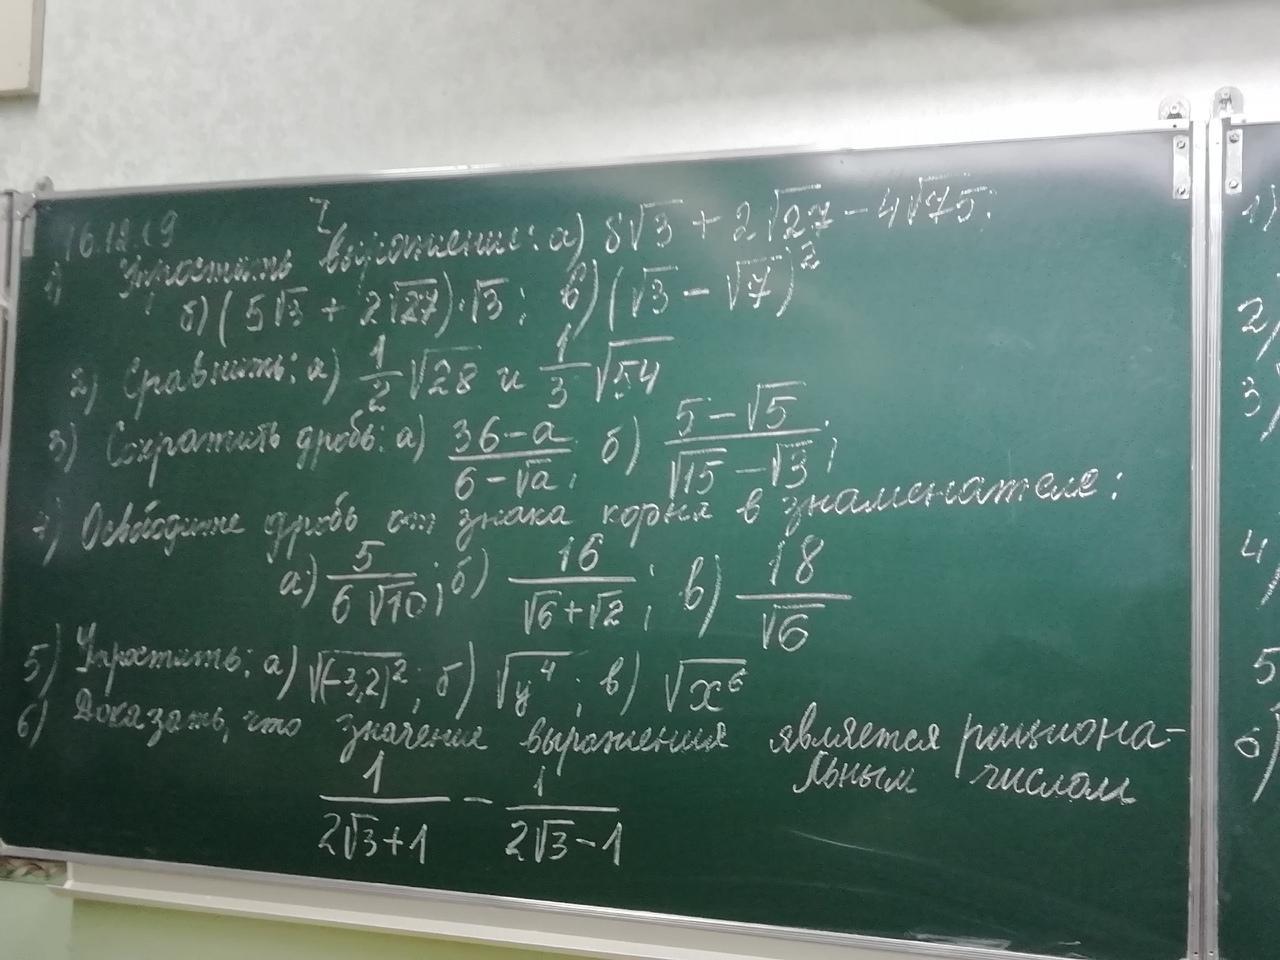 16.12.19 I
1) Упростить выражение: а) 8√3 + 2√27 - 4√75;
б) (5√3 + 2√27)·√3; в) (√3 - √7)²
2) Сравнить: а) 1/2 √28 и 1/3 √54
3) Сократить дробь: а) (36-а)/(6-√а); б) (5-√5)/(√15-√3);
4) Освободите дробь от знака корня в знаменателе:
а) 5/(6√10); б) 16/(√6+√2); в) 18/√6
5) Упростить: а) √(-3,2)²; б) √y⁴; в) √x⁶
6) Доказать, что значение выражения является рациона-
льным числом
1/(2√3+1) - 1/(2√3-1)
1)
2)
3)
4)
5
6)